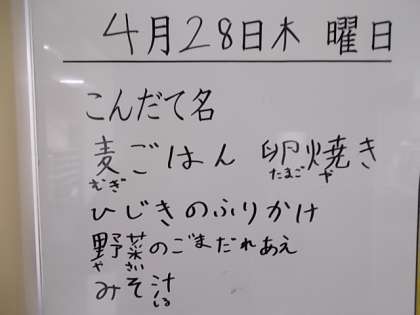 4月28日木曜日
こんだて名
麦ごはん 卵焼き
むぎ たまご や
ひじきのふりかけ
野菜のごまだれあえ
や さい
みそ汁
しる